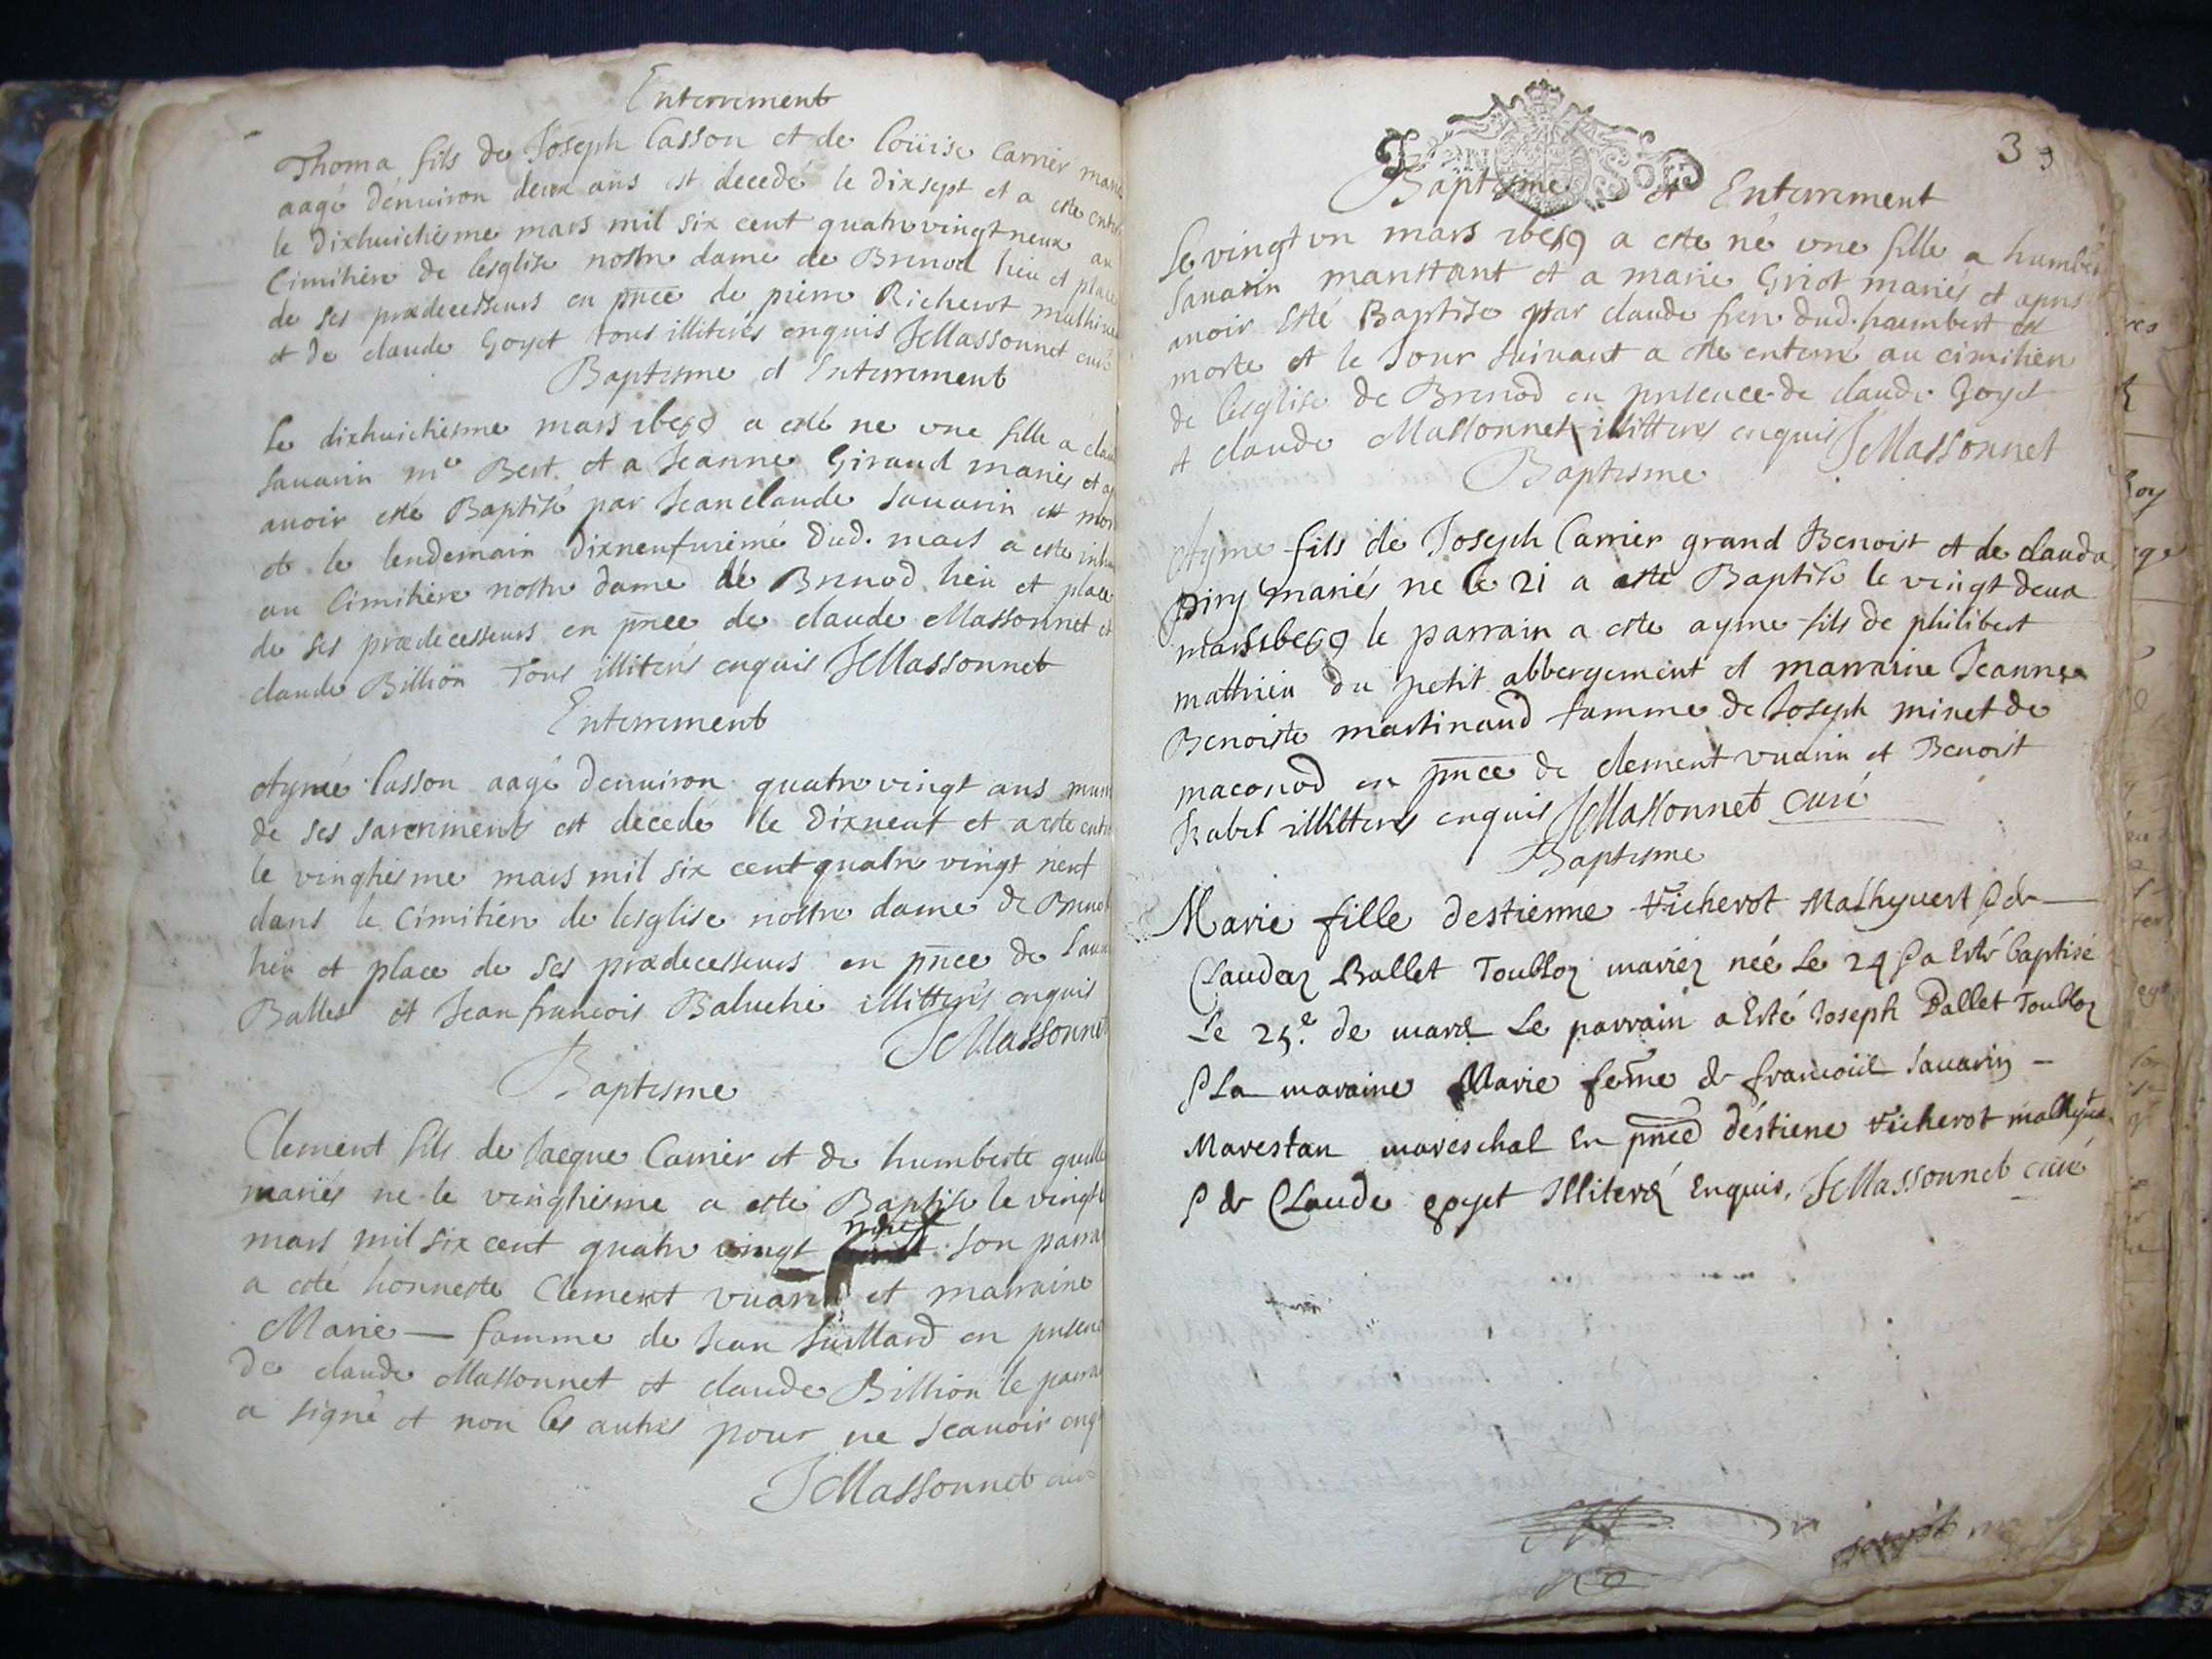 Enterrement
Thoma fils de Joseph Casson et de Loüise Carrier marié
aagé denuiron deux ans est decedé le dixsept et a esté enterré
le dixhuictiesme mars mil six cent quatre vingt neux au
Cimitiere de lesglise nostre dame de Brenod lieu et place
de ses prædecesseurs en pnce de pierre Richerot
et de claude Goyet tous illiterés enquis JCMassonnet curé
Baptesme et Enterrement
Le dixhuictiesme mars a esté ne une fille a
Sauarin me Bert et a Jeanne Giraud mariés et
auoir esté Baptisé par Jeanclaude Sauarin est
et le lendemain dixneufuiéme dud. mars a esté
au Cimitiere nostre dame de Brenod lieu et place
de ses prædecesseurs en pnce de claude Massonnet et
claude Billion Tous illiterés enquis JCMassonnet
Enterrement
Aymé Casson aagé denuiron quatre vingt ans
de ses sacrements est decedé le dixneuf et a esté
le vingtiesme mars mil six cent quatre vingt neuf
dans le Cimitiere de lesglise nostre dame de Brenod
lieu et place de ses prædecesseurs en pnce de
Ballet et Jean francois Baluche illitterés enquis
JCMassonnet
Baptesme
Clement fils de Jacque Carrier et de humberte
mariés ne le vingtiesme a esté Baptisé le vingt
mars mil six cent quatre vingt neuf son
a esté honneste Clement vuarin et marraine
Marie — famme de Jean Juillard en
de claude Massonnet et claude Billion le
a signé et non les autres pour ne scauoir
JCMassonnet
3
Baptesme et Enterrement
Le vingt vn mars a esté né vne fille a humbert
Sauarin manstant et a marie Griot mariés et apres
auoir esté Baptisé par claude frere dud. humbert est
morte et le Jour suiuant a esté enterré au cimitiere
de lesglise de Brenod en presence de claude Goyet
et claude Massonnet illitteres enquis JCMassonnet
Baptesme
Ayme fils de Joseph Carrier grand Benoist et de clauda
mariés ne le 21 a esté Baptisé le vingt deux
mars le parrain a esté ayme fils de philibert
mathieu du petit abbergement et marraine Jeanne
Benoiste martinaud famme de Joseph minet de
maconod en pnce de clement vuarin et Benoist
illitteres enquis JCMassonnet curé
Baptesme
Marie fille destienne Richerot &de
Claudaz Ballet Toubloz mariez née le 24 & a esté baptisé
Le 25.e de mars Le parrain a esté Joseph Ballet Toubloz
& La maraine Marie feme de francois Sauarin —
Marestan mareschal En pnce déstiene Richerot
& de Claude goyet Illiteré Enquis, JCMassonnet curé